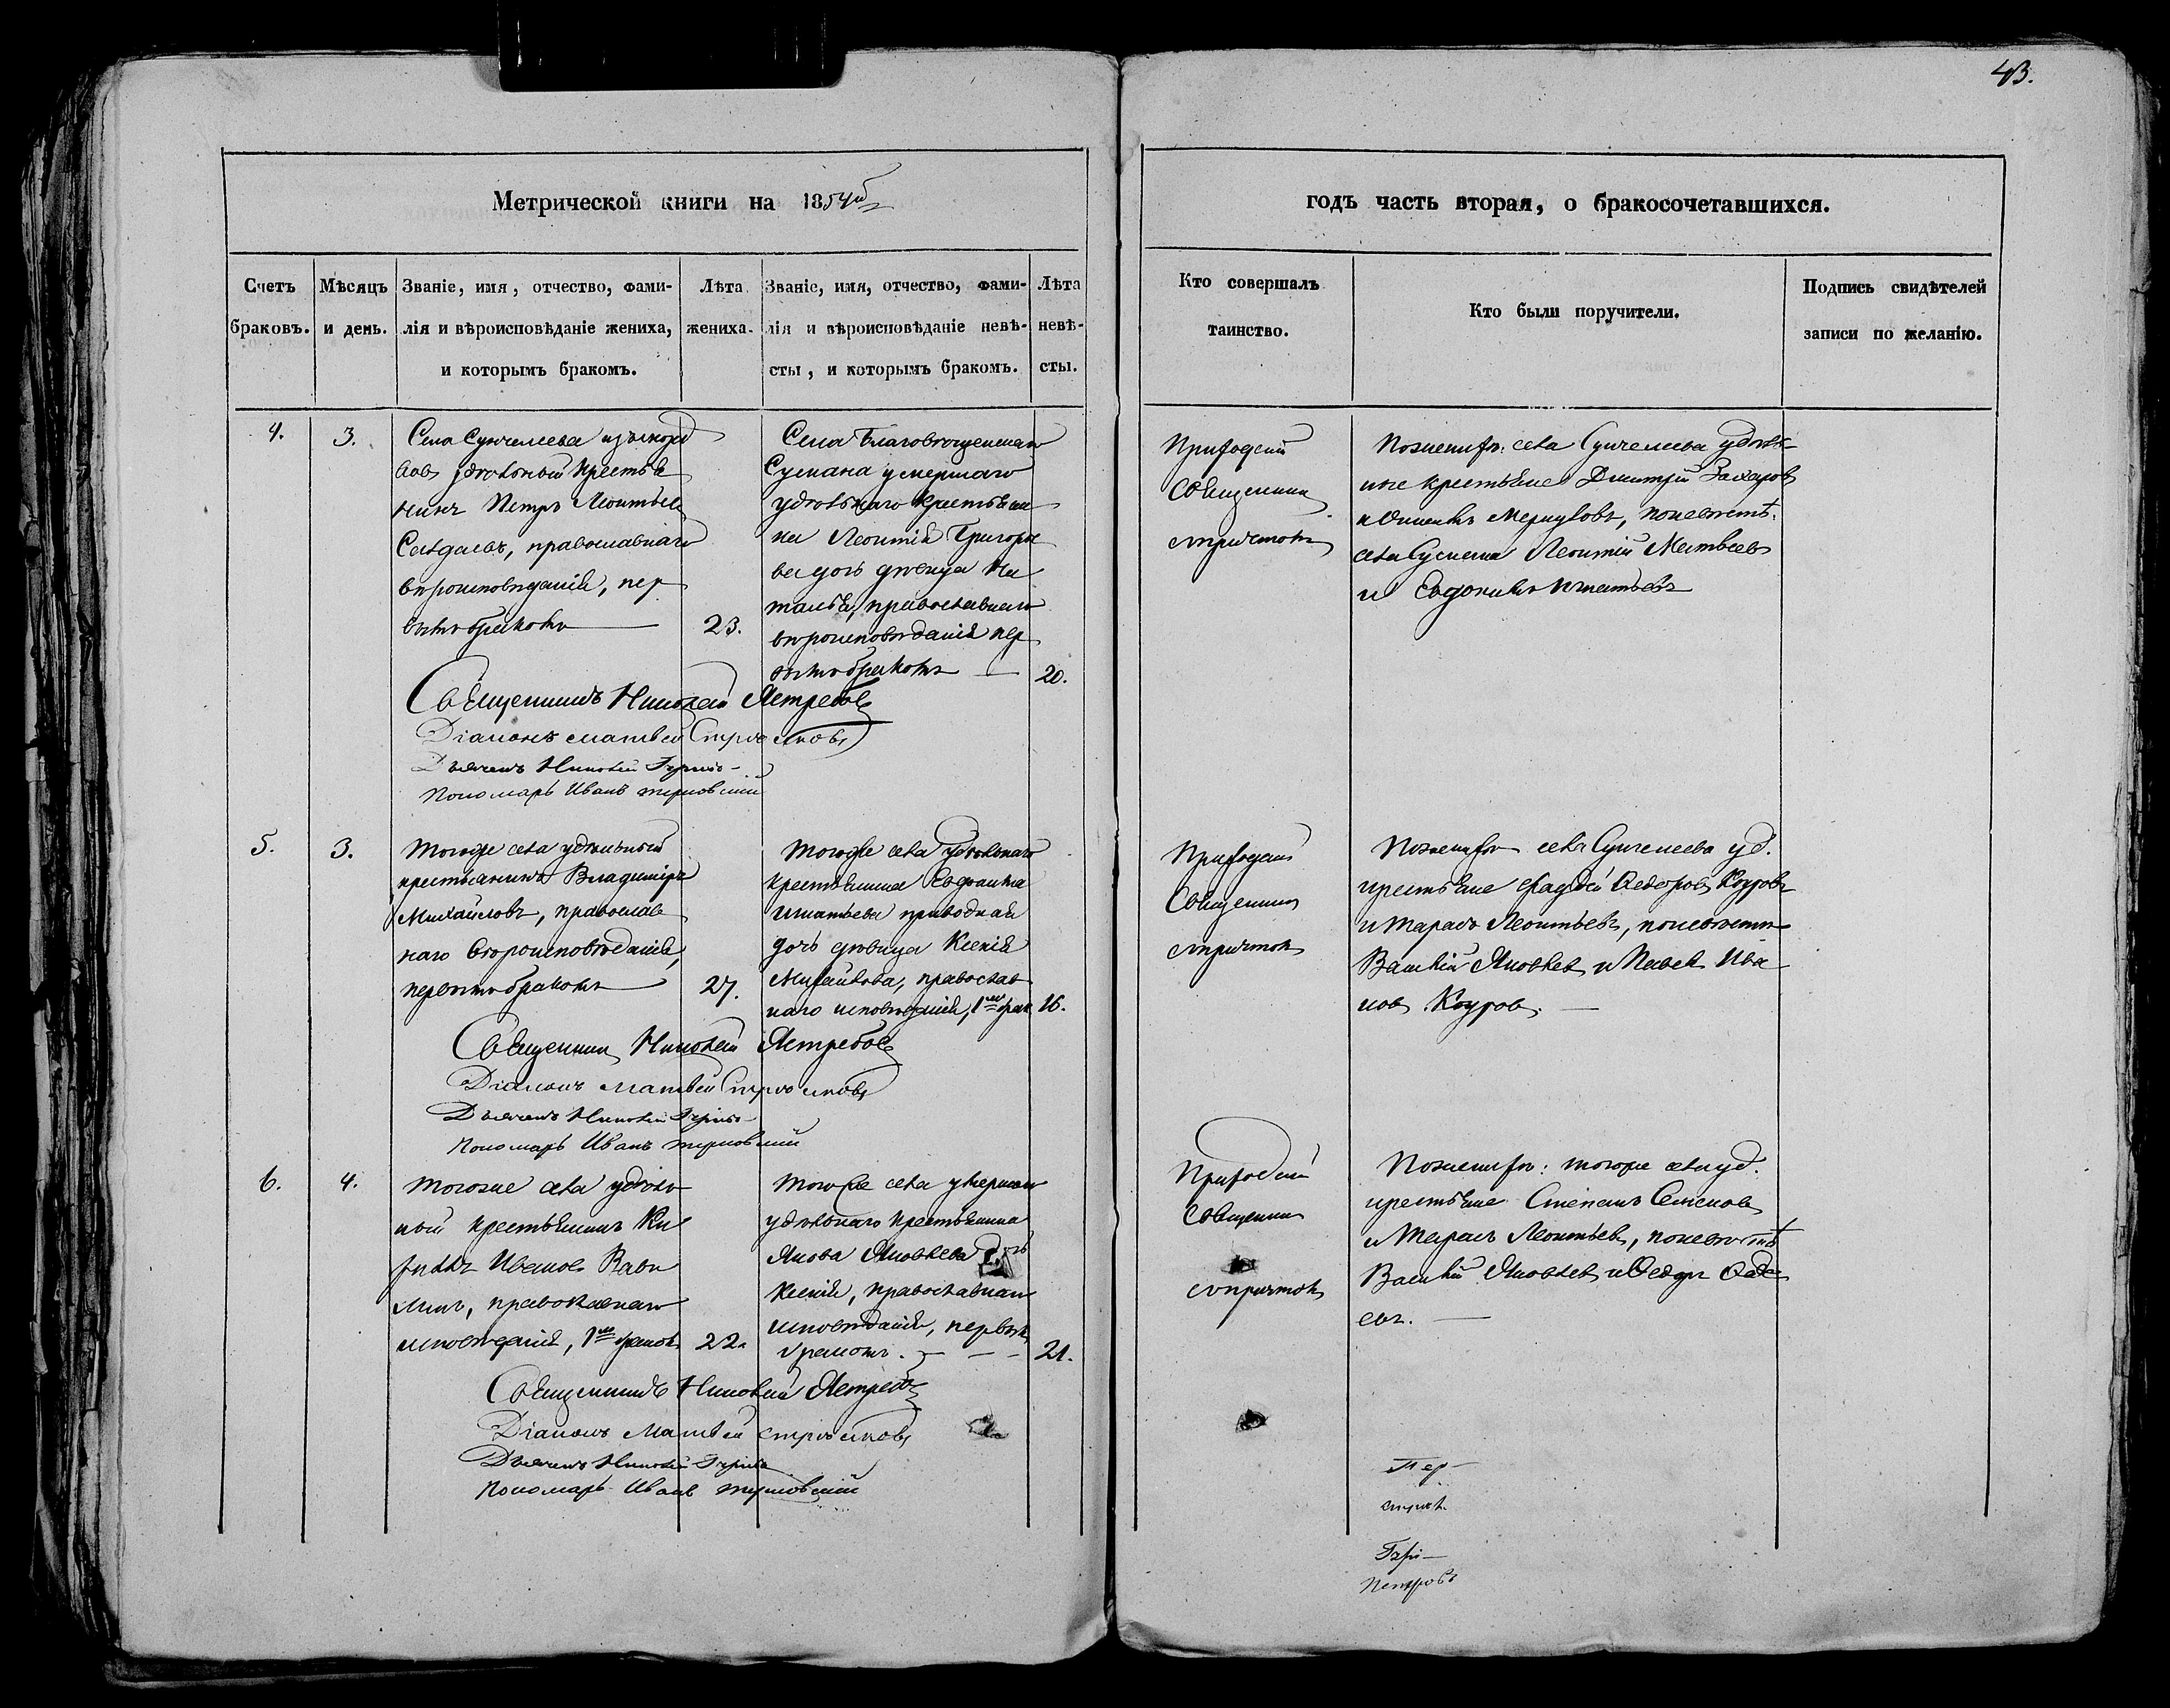 43.
Метрической книги на 1854й
годъ часть вторая, о бракосочетавшихся.
Счетъ браковъ.
Мѣсяцъ и день.
Званіе, имя, отчество, фами-
лія и вѣроисповѣданіе жениха,
и которымъ бракомъ.
Лѣта
жениха.
Званіе, имя, отчество, фами-
лія и вѣроисповѣданіе невѣ-
сты, и которымъ бракомъ.
Лѣта
невѣ-
сты.
Кто совершалъ
таинство.
Кто были поручители.
Подпись свидѣтелей
записи по желанію.
4.
3.
Села Сунчелеева
удѣльный крестья
нинъ Петръ Леонтьев
православнаго
вѣроисповѣданія, пер
вымъ бракомъ
23.
Села Благовѣщенскаго
Сускана умершаго
удѣльнаго крестьяни
на Леонтія Григорье
ва дочь дѣвица На
талья, православнаго
вѣроисповѣданія пер
вымъ бракомъ
20.
Приходскій
Священник
с причтомъ
По женихѣ: села Сунчелеева удѣль
ные крестьяне Димитрій Захаров
и Меркуловъ, по невѣстѣ:
села Сускана Леонтій Матвеев
и Евдокимъ Игнатьевъ
Священникъ Николай Ястребов
Діаконъ Матвей
Дьячекъ Николай
Пономарь Иванъ Терновскій
5.
3.
Тогоже села удѣльный
крестьянинъ Владиміръ
Михайловъ, православ
наго вѣроисповѣданія,
первымъ бракомъ
27.
Тогоже села удѣльнаго
крестьянина
Игнатьева приводная
дочь дѣвица Ксенія
Михайлова, православ
наго исповѣданія, 1мъ брак
16.
Приходскій
Священник
с причтом
По женихѣ села Сунчелеева уд.
крестьяне Фаддей Федоров
и Тарасъ Леонтьевъ, по невѣстѣ
Василій Яковлев и Павел Ива
нов
Священник Николай Ястребов
Діаконъ Матвей
Дьячекъ Николай
Пономарь Иванъ Терновскій
6.
4.
Тогоже села удѣль
ный крестьянинъ Ки
риллъ Иванов Вави
линъ, православнаго
исповѣданія, 1мъ браком
22.
Тогоже села умершаго
удѣльнаго крестьянина
Якова Яковлева дочь
Ксенія, православнаго
исповѣданія, первымъ
бракомъ.
21.
Приходскій
Священник
с причтом
По женихѣ: тогоже села уд.
крестьяне Степанъ Семенов
и Тарасъ Леонтьевъ, по невѣстѣ
Василій Яковлев и Федоръ
евъ.
Священникъ Николай Ястребов
Діаконъ Матвей
Дьячекъ Николай
Пономарь Иванъ Терновскій